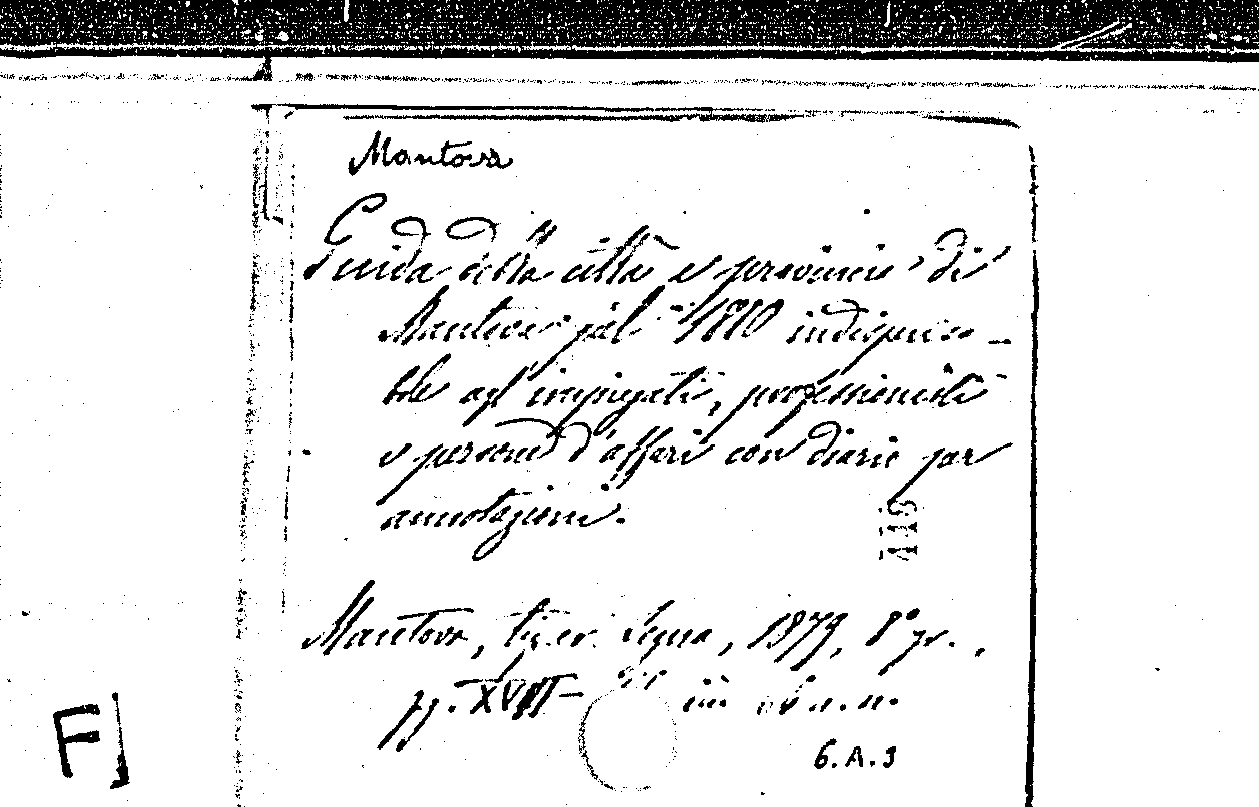 Mantova
Guida della città e provincia di
Mantova pel 1880 indispensa-
bile agl'impiegati, professionisti
e persone d'affari con diario per
annotazioni.
Mantova, tip. er. Segna, 1879, 8° gr.,
pp. XVIII- in ob. n. n.
6.A.9
F]